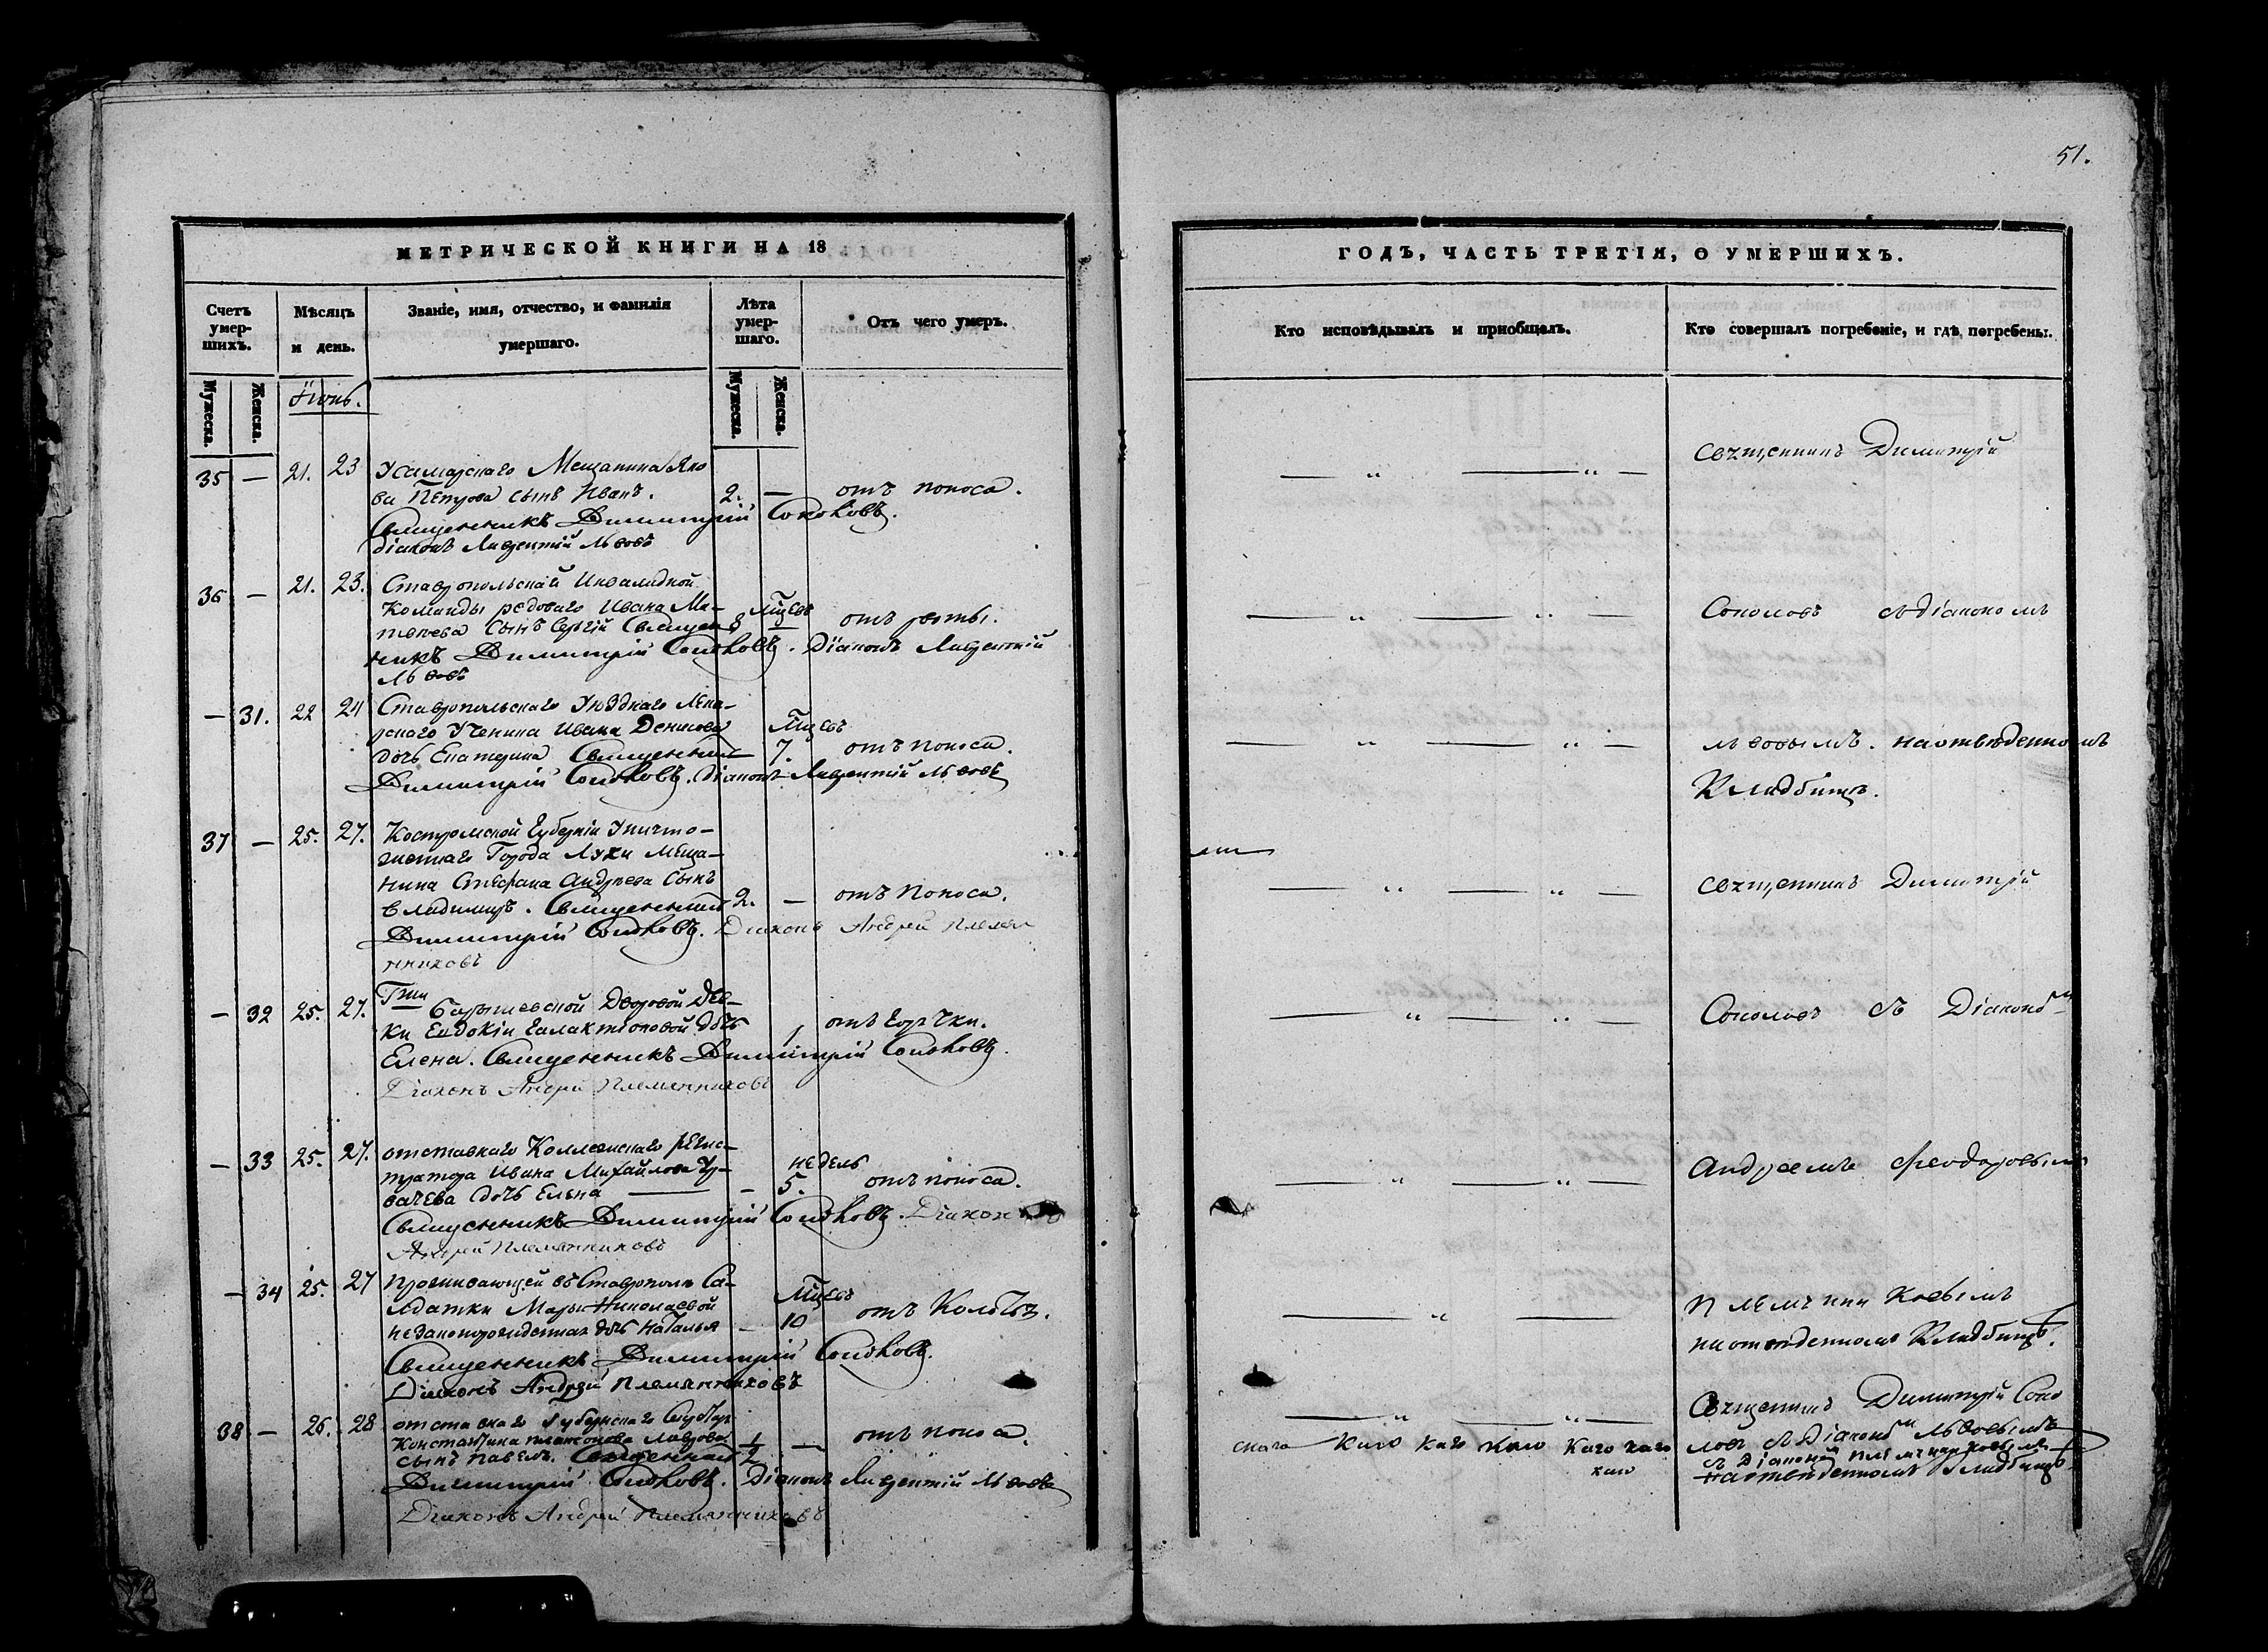 МЕТРИЧЕСКОЙ КНИГИ НА 18
Счетъ умер-шихъ.
Мѣсяцъ и день.
Званіе, имя, отчество, и фамилія умершаго.
Лѣта умер-шаго.
Отъ чего умеръ.
Мужеска. Женска.
Мужеска. Женска.
Іюнь.
35 — 21. 23 Усамарскаго Мещанина Яко
ва Петрова сынъ Иванъ. 2. — отъ поноса.
Священникъ Димитрій Соколовъ.
діаконъ Лаврентій Львовъ
36 — 21. 23. Ставропольской Инвалидной
Команды редоваго Ивана Ма-
сынъ Сергій Священ 8 мцевъ отъ рвоты.
никъ Димитрій Соколовъ. Діаконъ Лаврентій
Львовъ
— 31. 22 24 Ставропольскаго Уѣзднаго Лека-
рскаго Ученика Ивана Денисова мцевъ
дочь Екатерина Священникъ 7. отъ поноса.
Димитрій Соколовъ. діаконъ Лаврентій Львовъ
37 — 25. 27. Костромской Губерніи Уничто-
женнаго Города Лухи Меща-
нина Стефана Андреева сынъ
Владимиръ. Священникъ 2. — отъ поноса.
Димитрій Соколовъ. Діаконъ Андрей Племян
никовъ
— 32 25. 27. Гжи Дворовой Дев-
ки Евдокіи Галактіоновой дочь 1 отъ Горячки.
Елена. Священникъ Димитрій Соколовъ.
Діаконъ Андрей Племянниковъ
— 33 25. 27. отставнаго Коллежскаго регис-
тратора Ивана Михайлова недель
дочь Елена — 5. отъ поноса.
Священникъ Димитрій Соколовъ. Діаконъ
Андрей Племянниковъ
— 34 25. 27 проживающей въ Ставрополе Са-
лдатки Марьи Николаевой мцевъ
незаконорожденная дочь Наталья — 10 отъ
Священникъ Димитрій Соколовъ.
Діаконъ Андрей Племянниковъ
38 — 26. 28 отставнаго Губернскаго
Константина Лаврова 1/2 — отъ поноса.
сынъ Павелъ. Священникъ
Димитрій Соколовъ. Діаконъ Лаврентій Львовъ
Діаконъ Андрей Племянниковъ
51.
ГОДЪ, ЧАСТЬ ТРЕТІЯ, О УМЕРШИХЪ.
Кто исповѣдывалъ и пріобщалъ.
Кто совершалъ погребеніе, и гдѣ погребены.
Священникъ Димитрій
Соколовъ съ діакономъ
Львовымъ. на отведенномъ
Кладбище.
Священникъ Димитрій
Соколовъ съ Діакономъ
Андреемъ Феодоровымъ
Племянниковымъ
на отведенномъ Кладбище.
Священникъ Димитрій Соко
ловъ съ Діакономъ Львовымъ
съ Діаконом Племянниковымъ
на отведенномъ Кладбище